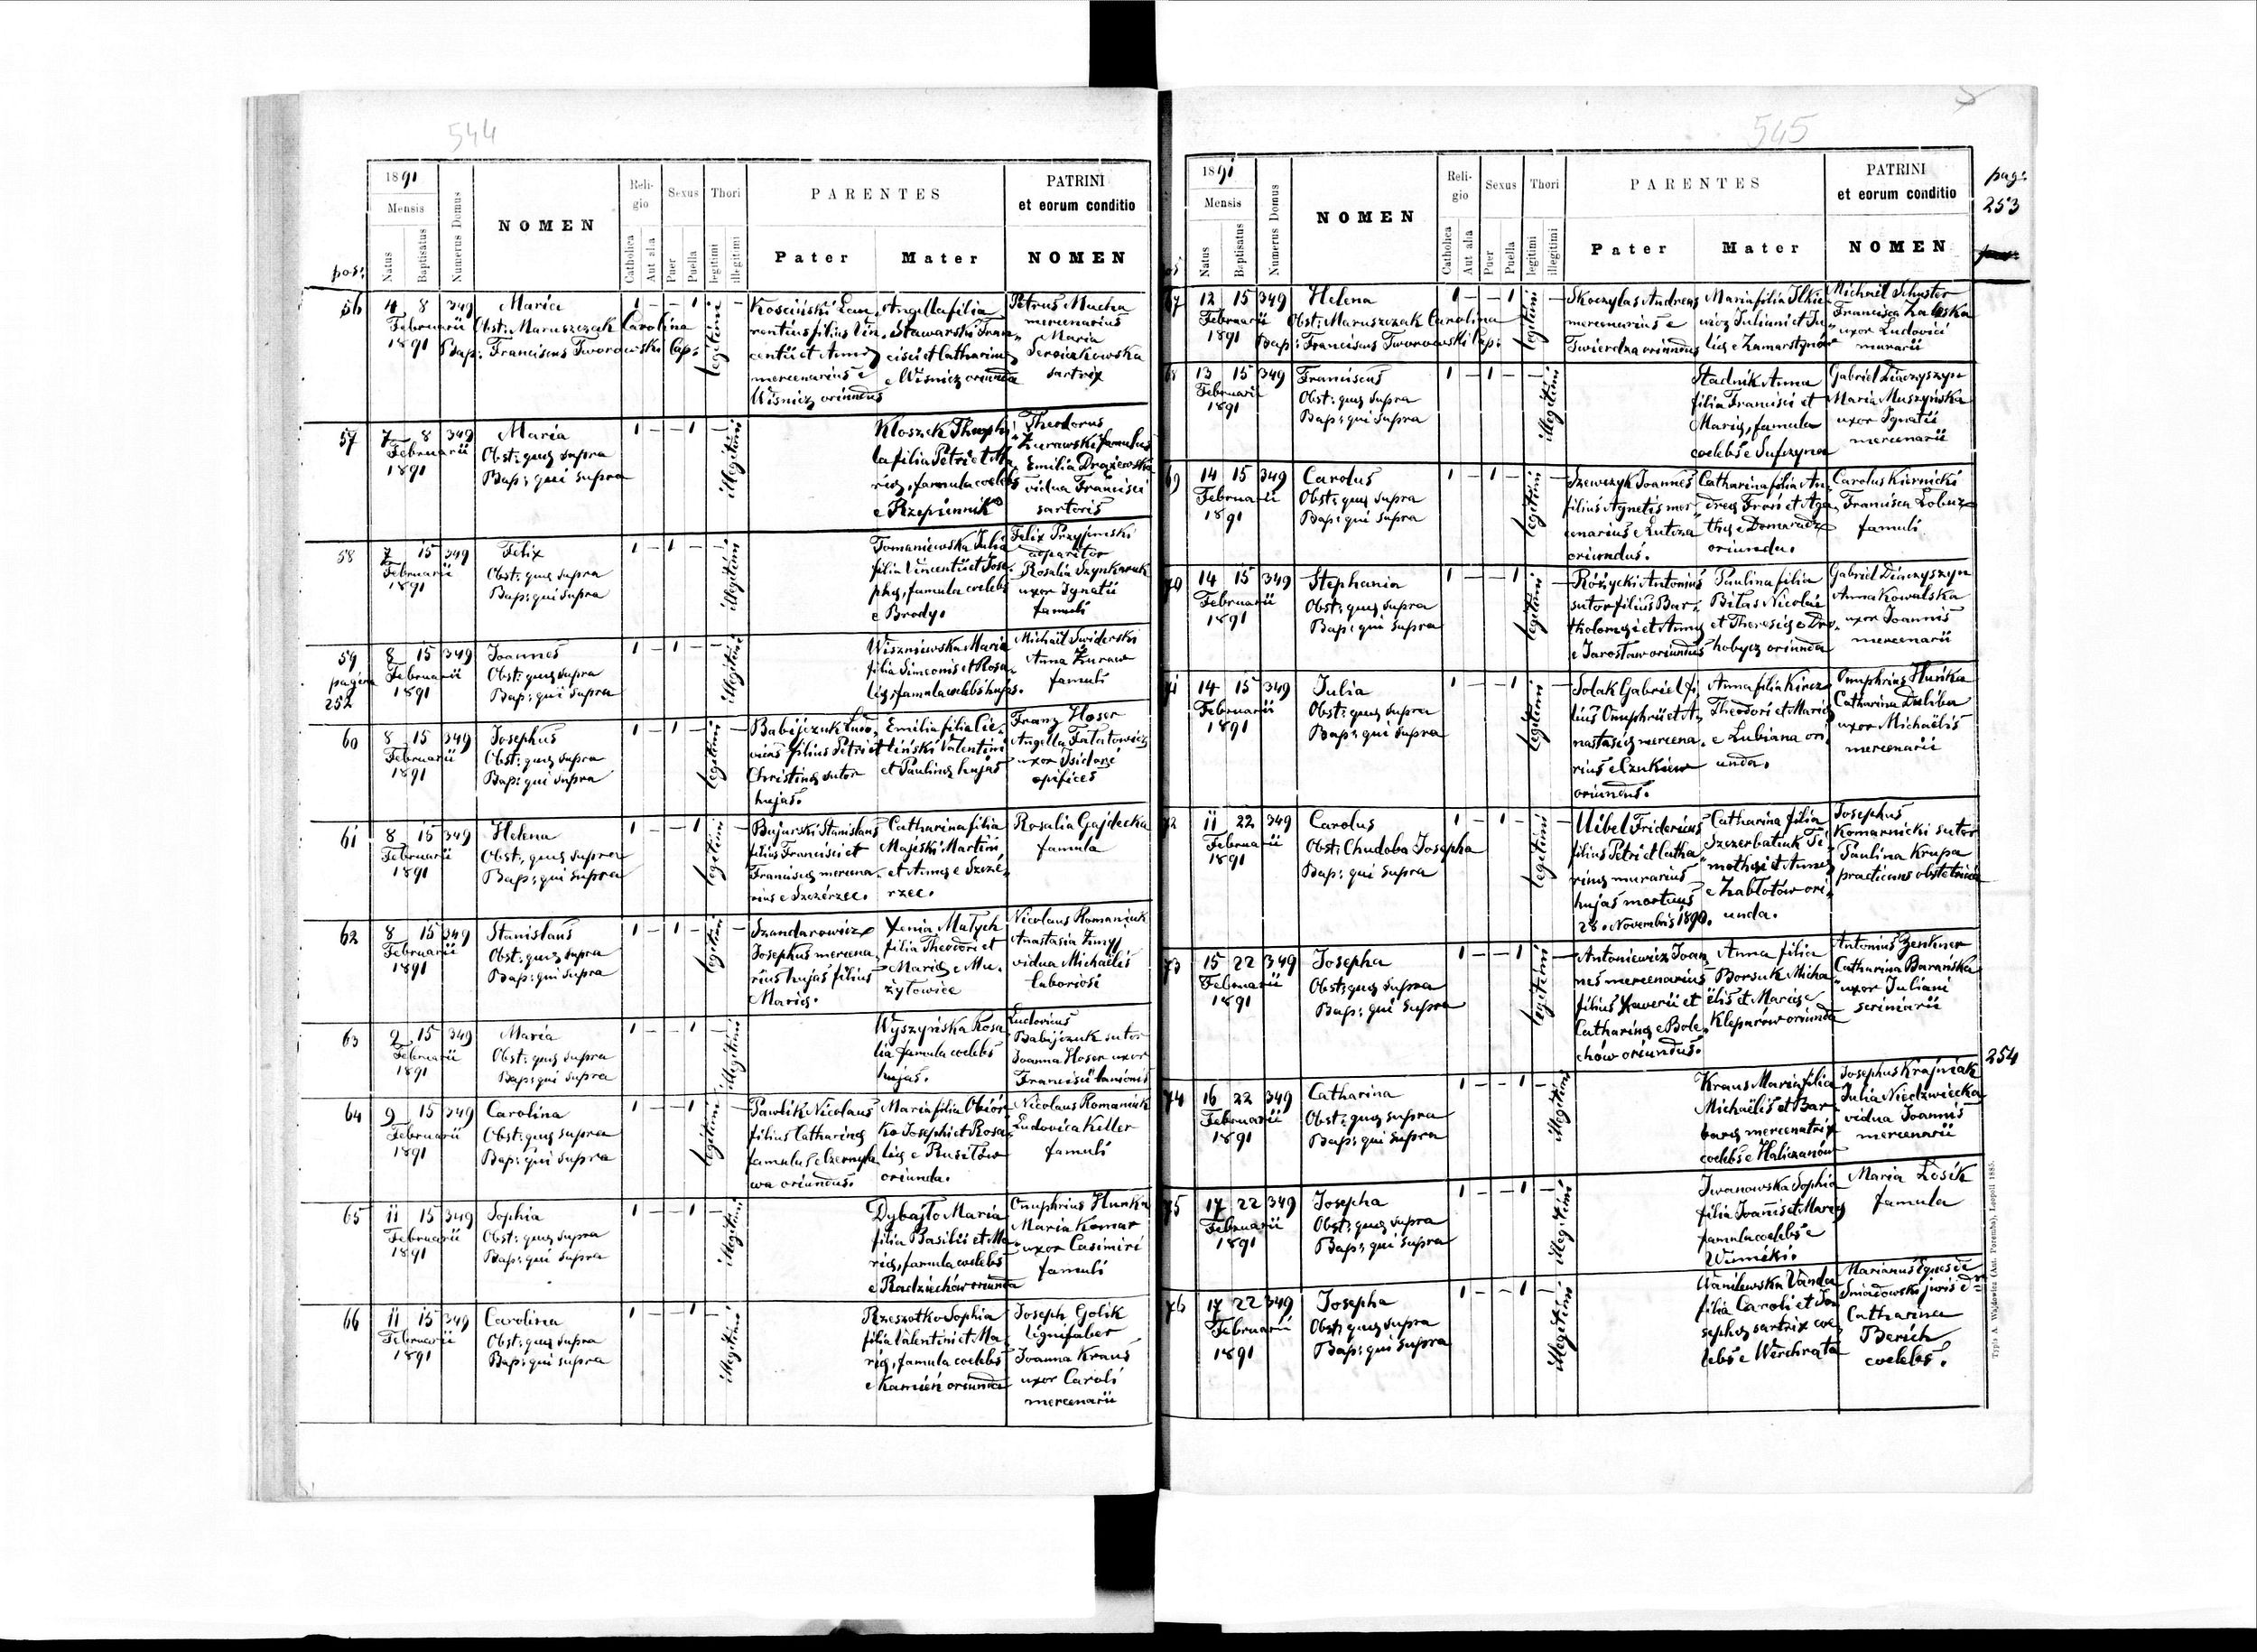 544
1891
Mensis
Natus
Baptisatus
Numerus Domus
NOMEN
Religio
Catholica
Aut alia
Sexus
Puer
Puella
Thori
legitimi
illegitimi
PARENTES
Pater
Mater
PATRINI
et eorum conditio
NOMEN
pos:
56 4 8 349 Maria 1 – – 1 legitimi –
Februarii Obst: Maruszczak Carolina
1891 Bap: Franciscus Tworowski Cap:
Kosciński Lau-
rentius filius Vin-
centii et Annę
mercenarius e
Wiśnicz oriundus
Angella filia
Stawarski Fran-
cisci et Catharinę
e Wiśnicz oriunda
Petrus Mucha
mercenarius
Maria
sartrix
57 7 8 349 Maria 1 – – 1 – illegitimi
Februarii Obst: quę supra
1891 Bap: qui supra
Kloszek Theophi-
la filia Petri et Ma-
rię, famula coelebs
e Rzepiennik
Theodorus
Żurawski famulus
Emilia
vidua Francisci
sartoris
58 7 15 349 Felix 1 – 1 – – illegitimi
Februarii Obst: quę supra
1891 Bap: qui supra
Tomaniewska Julia
filia Vincentii et Jose-
phę, famula coelebs
e Brody.
Felix
apparitor
Rosalia Szynkaruk
uxor Ignatii
famuli
59 8 15 349 Joannes 1 – 1 – – illegitimi
pagina Februarii Obst: quę supra
252 1891 Bap: qui supra
Wiszniewska Maria
filia Simeonis et Rosa-
lię, famula coelebs hujas.
Michaël Swiderski
Anna Żuraw
famuli
60 8 15 349 Josephus 1 – 1 – legitimi –
Februarii Obst: quę supra
1891 Bap: qui supra
Babijczuk Ludo-
vicus filius Petri et
Christinę sutor
hujas.
Emilia filia Cie-
liński Valentini
et Paulinę hujas
Franz Hoser
Angella Falatowicz
uxor Isidori
opifices
61 8 15 349 Helena 1 – – 1 legitimi –
Februarii Obst: quę supra
1891 Bap: qui supra
Bujarski Stanislaus
filius Francisci et
Franciscę mercena-
rius e Szczérzec.
Catharina filia
Majeski Martini
et Annę e Szczé-
rzec.
Rosalia Gajdecka
famula
62 8 15 349 Stanislaus 1 – 1 – legitimi
Februarii Obst: quę supra
1891 Bap: qui supra
Szandarowicz
Josephus mercena-
rius hujas filius
Marię.
Xenia Matych
filia Theodori et
Marię e Mu-
żyłowice
Nicolaus Romaniuk
Anastasia
vidua Michaëlis
laboriosi
63 2 15 349 Maria 1 – – 1 – illegitimi
Februarii Obst: quę supra
1891 Bap: qui supra
Wyszyńska Rosa-
lia famula coelebs
hujas.
Ludovicus
Babijczuk sutor
Joanna Hoser uxor
Francisci lanionis
64 9 15 349 Carolina 1 – – 1 legitimi –
Februarii Obst: quę supra
1891 Bap: qui supra
Pawlik Nicolaus
filius Catharinę
famulus e Czernyla-
wa oriundus.
Maria filia
ko Josephi et Rosa-
lię e Rusiłów
oriunda.
Nicolaus Romaniuk
Ludovica Keller
famuli
65 11 15 349 Sophia 1 – – 1 – illegitimi
Februarii Obst: quę supra
1891 Bap: qui supra
Dybajło Maria
filia Basilii et Ma-
rię, famula coelebs
e Radziechów oriunda
Onuphrius Hunka
Maria Komar
uxor Casimiri
famuli
66 11 15 349 Carolina 1 – – 1 – illegitimi
Februarii Obst: quę supra
1891 Bap: qui supra
Rzeszotko Sophia
filia Valentini et Ma-
rię, famula coelebs
e Kamień oriunda
Joseph Golik
lignifaber
Joanna Kraus
uxor Caroli
mercenarii
545
1891
Mensis
Natus
Baptisatus
Numerus Domus
NOMEN
Religio
Catholica
Aut alia
Sexus
Puer
Puella
Thori
legitimi
illegitimi
PARENTES
Pater
Mater
PATRINI
et eorum conditio
NOMEN
pag:
253
67 12 15 349 Helena 1 – – 1 legitimi –
Februarii Obst: Maruszczak Carolina
1891 Bap: Franciscus Tworowski Cap:
Skoczylas Andreas
mercenarius e
Twierdza oriundus
Maria filia Ilkie-
wicz Juliani et Ju-
lię e Zamarstynów
Michaël Schuster
Francisca Zaleska
uxor Ludovici
murarii
68 13 15 349 Franciscus 1 – 1 – – illegitimi
Februarii Obst: quę supra
1891 Bap: qui supra
Stadnik Anna
filia Francisci et
Marię, famula
coelebs e
Gabriel Diaczyszyn
Maria Muszyńska
uxor Ignatii
mercenarii
69 14 15 349 Carolus 1 – 1 – legitimi –
Februarii Obst: quę supra
1891 Bap: qui supra
Szewczyk Joannes
filius Agnetis mer-
cenarius e Lutcza
oriundus.
Catharina filia An-
dreę Froń et Aga-
thę e Domaradz
oriunda.
Carolus Kiernicki
Francisca Łobuz
famuli
70 14 15 349 Stephania 1 – – 1 legitimi –
Februarii Obst: quę supra
1891 Bap: qui supra
Różycki Antonius
sutor filius Bar-
tholomęi et Annę
e Jarosław oriundus
Paulina filia
Biłas Nicolai
et Theresię e Dro-
hobycz oriunda
Gabriel Diaczyszyn
Anna Kowalska
uxor Joannis
mercenarii
71 14 15 349 Julia 1 – – 1 legitimi –
Februarii Obst: quę supra
1891 Bap: qui supra
Solak Gabriel fi-
lius Onuphrii et A-
nastasię mercena-
rius e Czukiew
oriundus.
Anna filia
Theodori et Marię
e Lubiana ori-
unda.
Onuphrius Hunka
Catharina Daliba
uxor Michaëlis
mercenarii
72 11 22 349 Carolus 1 – 1 – legitimi –
Februarii Obst: Chudoba Josepha
1891 Bap: qui supra
Uibel Fridericus
filius Petri et Catha-
rinę murarius
hujas mortuus
28. Novembris 1890.
Catharina filia
Szczerbatiuk Ti-
mothęi et Annę
e Zabłotów ori-
unda.
Josephus
Komarnicki sutor
Paulina Krupa
practicans obstetricia
73 15 22 349 Josepha 1 – – 1 legitimi –
Februarii Obst: quę supra
1891 Bap: qui supra
Antoniewicz Joan-
nes mercenarius
filius Xaverii et
Catharinę e Bole-
chów oriundus.
Anna filia
Borsuk Micha-
ëlis et Marię e
Kleparów oriunda
Antonius Zenkner
Catharina Barańska
uxor Juliani
scriniarii
254
74 16 22 349 Catharina 1 – – 1 – illegitimi
Februarii Obst: quę supra
1891 Bap: qui supra
Kraus Maria filia
Michaëlis et Bar-
barę mercenatrix
coelebs e Haliczanów
Josephus Krajniak
Julia Niedzwiecka
vidua Joannis
mercenarii
75 17 22 349 Josepha 1 – – 1 – illegitimi
Februarii Obst: quę supra
1891 Bap: qui supra
Iwanowska Sophia
filia Joannis et Marię
famula coelebs e
Winniki.
Maria Łosik
famula
76 17 22 349 Josepha 1 – – 1 – illegitimi
Februarii Obst: quę supra
1891 Bap: qui supra
Wanda
filia Caroli et Jo-
sephę sartrix coe-
lebs e Werchrata
Marianus Eques de
Catharina
Berich
coelebs.
Typis A. Wajdowicz (Ant. Poremba), Leopoli 1885.